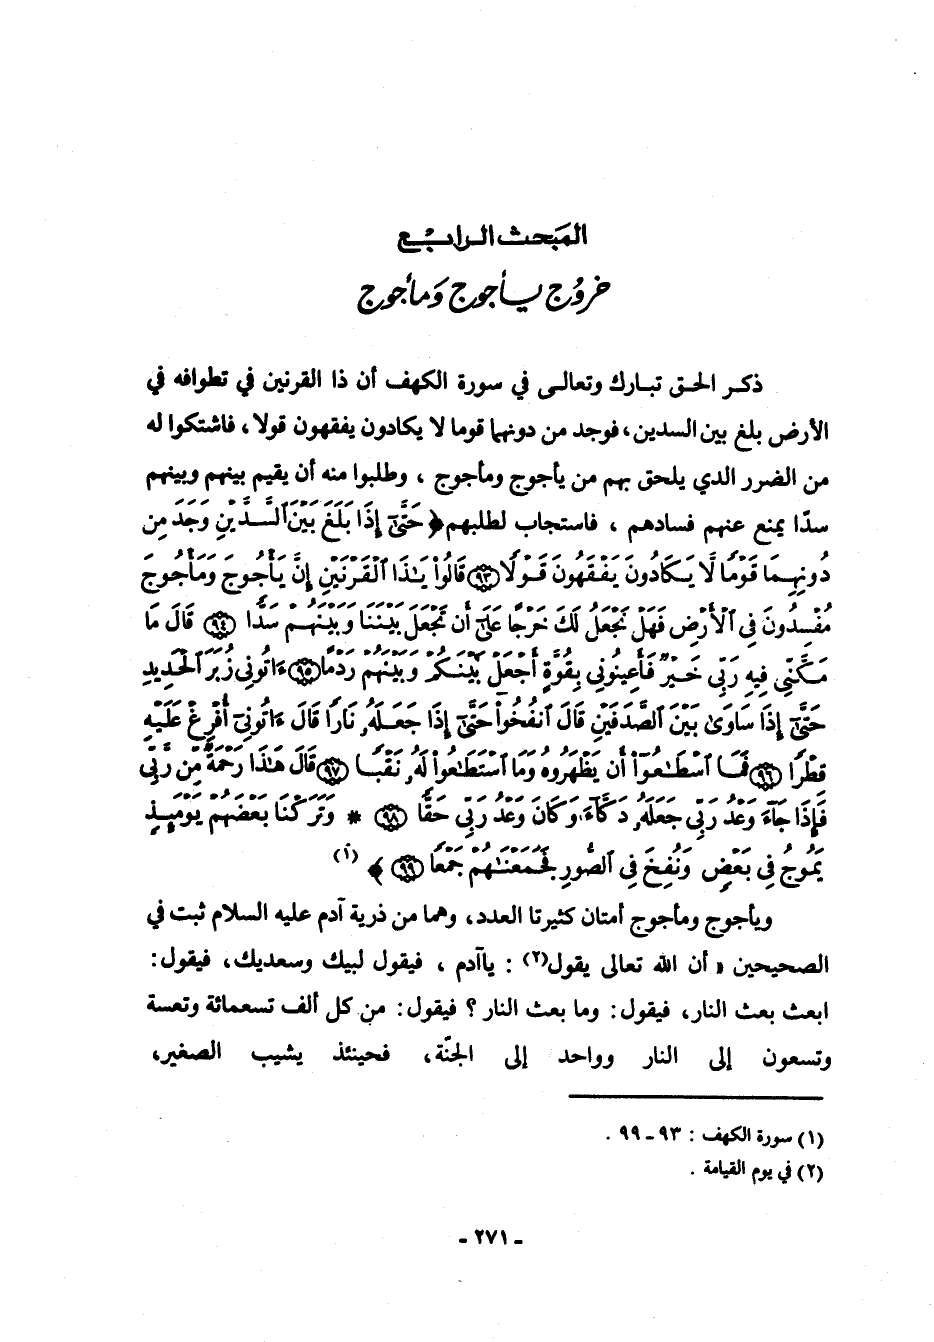 المبحث الرابع
خروج يأجوج ومأجوج
ذكر الحق تبارك وتعالى في سورة الكهف أن ذا القرنين في تطوافه في
الأرض بلغ بين السدين، فوجد من دونهما قوما لا يكادون يفقهون قولا، فاشتكوا له
من الضرر الذي يلحق بهم من يأجوج ومأجوج ، وطلبوا منه أن يقيم بينهم وبينهم
سدّا يمنع عنهم فسادهم ، فاستجاب لطلبهم ﴿ حَتَّىٰٓ إِذَا بَلَغَ بَيْنَ ٱلسَّدَّيْنِ وَجَدَ مِن
دُونِهِمَا قَوْمًا لَّا يَكَادُونَ يَفْقَهُونَ قَوْلًا ٩٣ قَالُوا۟ يَٰذَا ٱلْقَرْنَيْنِ إِنَّ يَأْجُوجَ وَمَأْجُوجَ
مُفْسِدُونَ فِى ٱلْأَرْضِ فَهَلْ نَجْعَلُ لَكَ خَرْجًا عَلَىٰٓ أَن تَجْعَلَ بَيْنَنَا وَبَيْنَهُمْ سَدًّا ٩٤ قَالَ مَا
مَكَّنِّى فِيهِ رَبِّى خَيْرٌ فَأَعِينُونِى بِقُوَّةٍ أَجْعَلْ بَيْنَكُمْ وَبَيْنَهُمْ رَدْمًا ٩٥ ءَاتُونِى زُبَرَ ٱلْحَدِيدِ
حَتَّىٰٓ إِذَا سَاوَىٰ بَيْنَ ٱلصَّدَفَيْنِ قَالَ ٱنفُخُوا۟ حَتَّىٰٓ إِذَا جَعَلَهُۥ نَارًا قَالَ ءَاتُونِىٓ أُفْرِغْ عَلَيْهِ
قِطْرًا ٩٦ فَمَا ٱسْطَٰعُوٓا۟ أَن يَظْهَرُوهُ وَمَا ٱسْتَطَٰعُوا۟ لَهُۥ نَقْبًا ٩٧ قَالَ هَٰذَا رَحْمَةٌ مِّن رَّبِّى
فَإِذَا جَآءَ وَعْدُ رَبِّى جَعَلَهُۥ دَكَّآءَ وَكَانَ وَعْدُ رَبِّى حَقًّا ٩٨ * وَتَرَكْنَا بَعْضَهُمْ يَوْمَئِذٍ
يَمُوجُ فِى بَعْضٍ وَنُفِخَ فِى ٱلصُّورِ فَجَمَعْنَٰهُمْ جَمْعًا ٩٩ ﴾ (١)
ويأجوج ومأجوج أمتان كثيرتا العدد، وهما من ذرية آدم عليه السلام ثبت في
الصحيحين « أن الله تعالى يقول(٢) : ياآدم ، فيقول لبيك وسعديك، فيقول:
ابعث بعث النار، فيقول: وما بعث النار؟ فيقول: من كل ألف تسعمائة وتعسة
وتسعون إلى النار وواحد إلى الجنّة، فحينئذ يشيب الصغير،
(١) سورة الكهف : ٩٣ - ٩٩ .
(٢) في يوم القيامة .
- ٢٧١ -